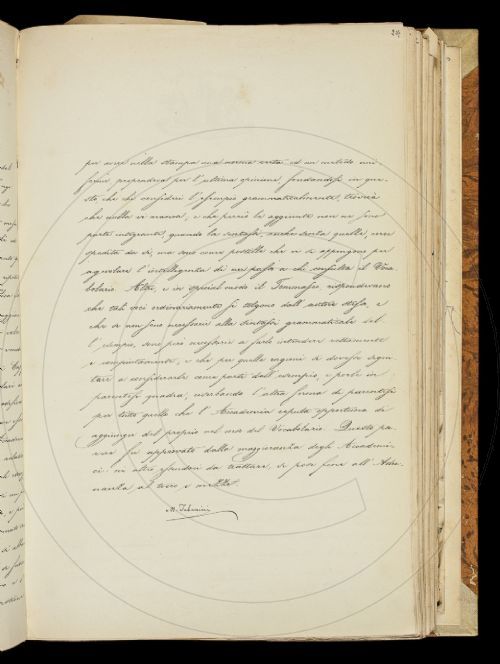 24
per aver nella stampa una norma certa ed un metodo uni-
forme propendeva per l'ultima opinione, fondandosi in que-
sto che chi consideri l'esempio grammaticalmente, troverà
che nulla vi manca, e che perciò le aggiunte non ne sono
parte integrante, quando la sintassi anche senza quelle, cor-
spedita da sé, ma sono come postille che vi si appongono per
agevolare l'intelligenza di un passo a chi consulta il Voca-
bolario. Altri, e in special modo il Tommaséo, rispondevano
che tali voci ordinariamente si tolgono dall'autore stesso, e
che se non sono necessarie alla sintassi grammaticale del-
l'esempio, sono però necessarie a farlo intendere rettamente
e compiutamente, e che per quelle ragioni si dovesse seguí-
tare a considerarle come parte dell'esempio, e porle in
parentesi quadra, serbando l'altra forma di parentesi
per tutto quello che l'Accademia reputa opportuno di
aggiunger del proprio nel uso del Vocabolario. Questo pa-
rere fu approvato dalla maggioranza degli Accademi-
ci: né altro essendovi da trattare, si pose fine all'Adu-
nanza al tocco e
M. Tabarrini